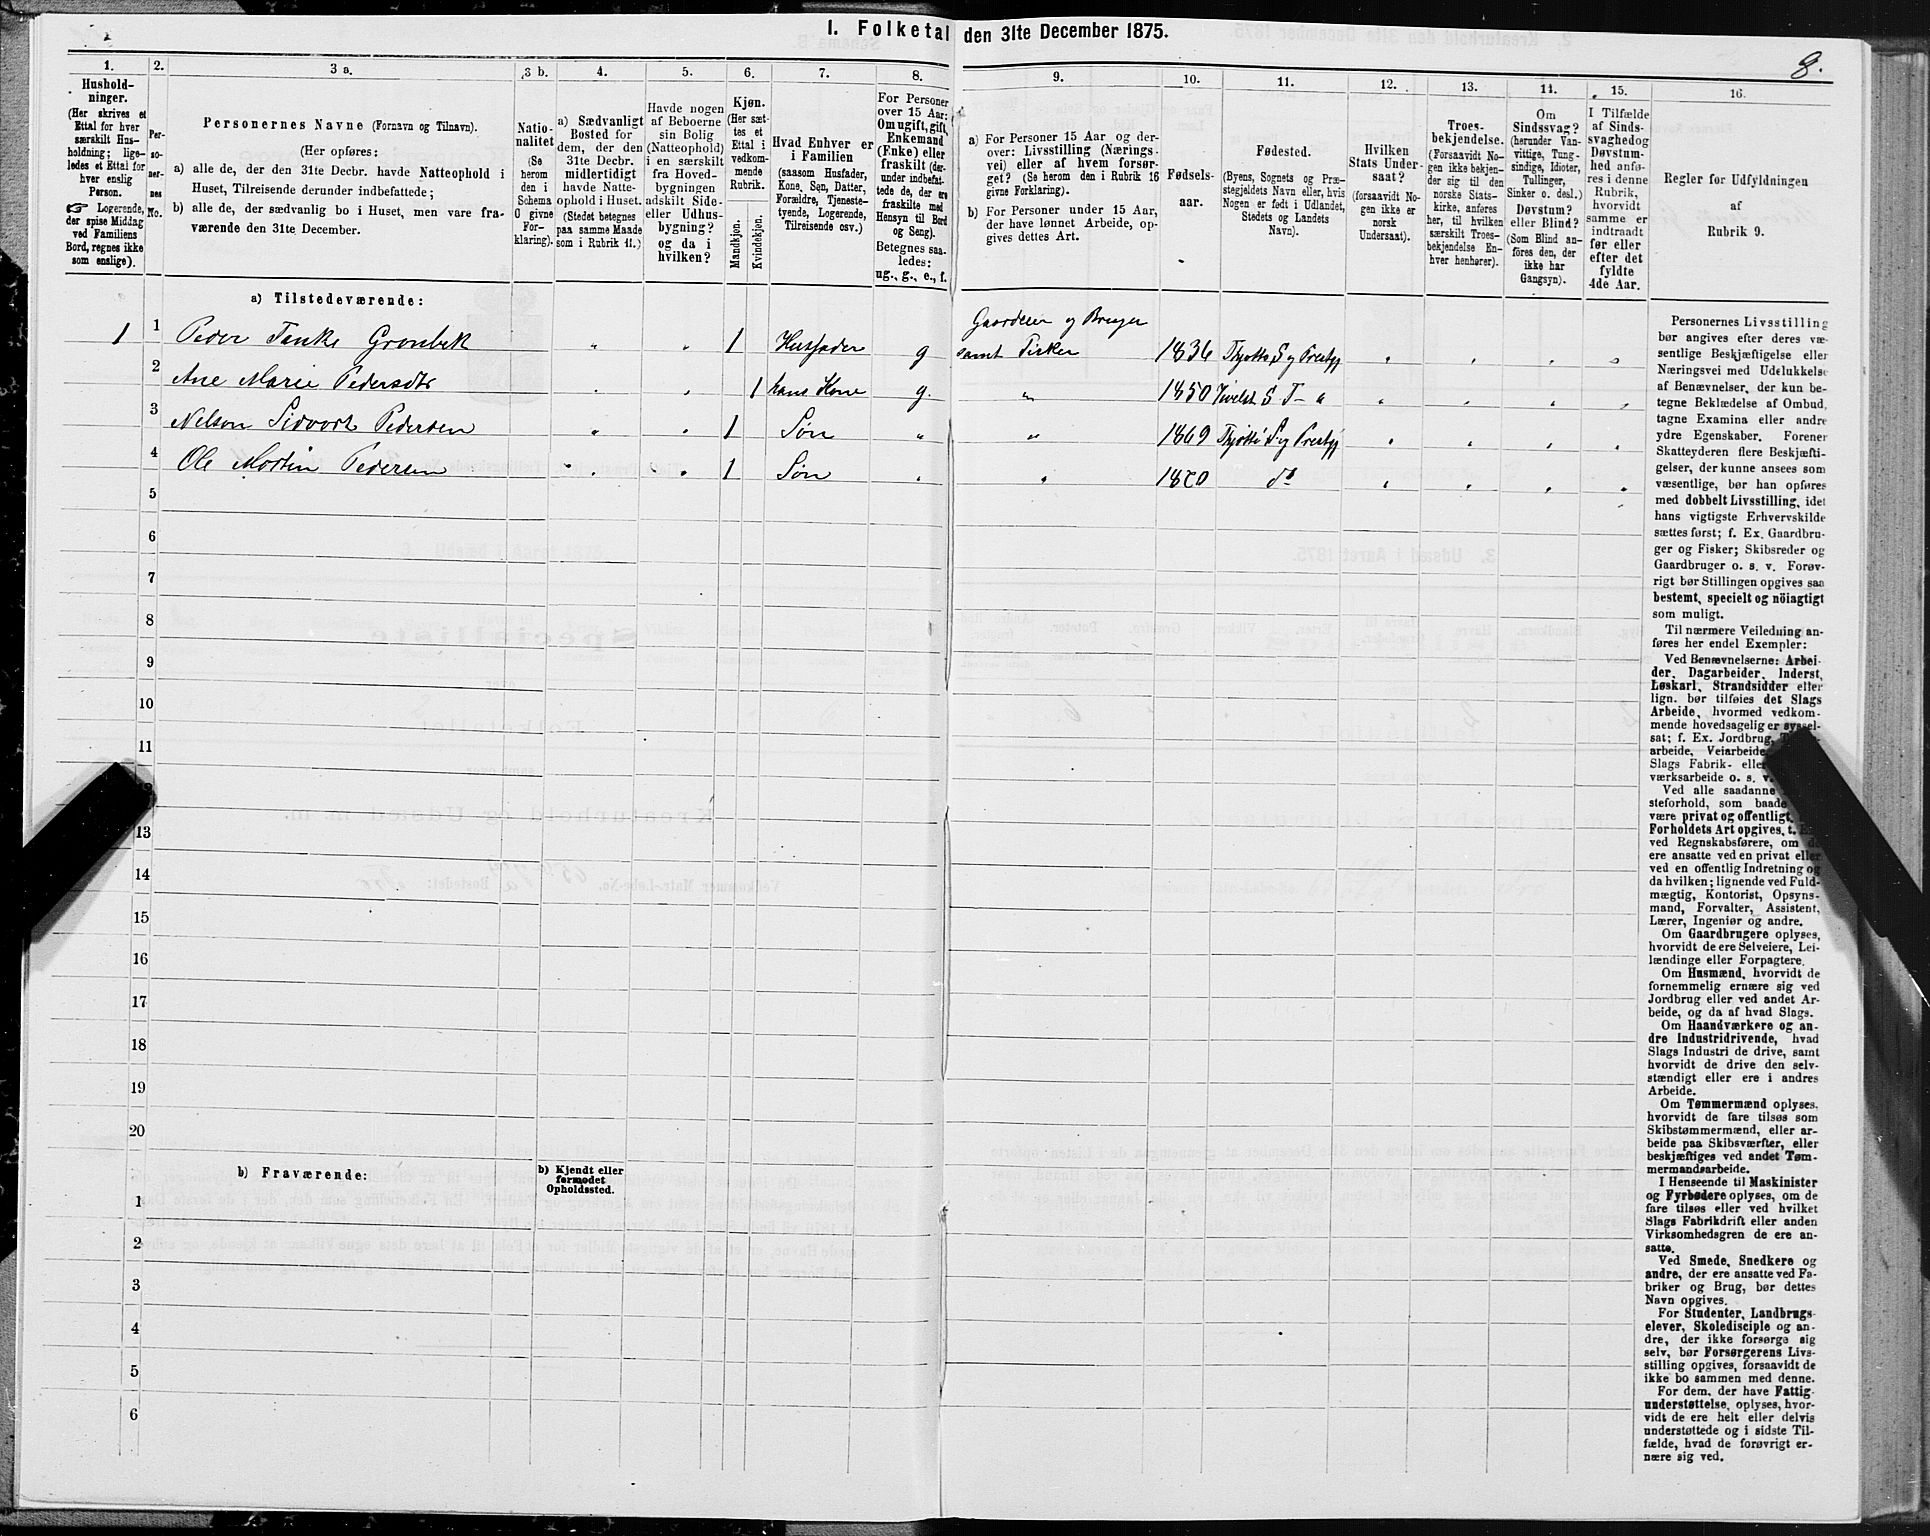 I. Folketal den 31te December 1875.
8.
1.
Hushold-
ninger.
(Her skrives et
Ettal for hver
særskilt Hus-
holdning; lige-
ledes et Ettal for
hver enslig
Person.
☞ Logerende,
der spise Middag
ved Familiens
Bord, regnes ikke
som enslige).
2.
Per-
so-
ner-
nes
No.
3 a.
Personernes Navne (Fornavn og Tilnavn).
(Her opføres:
a) alle de, der den 31te Decbr. havde Natteophold i
Huset, Tilreisende derunder indbefattede;
b) alle de, der sædvanlig bo i Huset, men vare fra-
værende den 31te December.
3 b.
Natio-
nalitet
(Se
herom
den i
Schema
O givne
For-
klaring).
4.
a) Sædvanligt
Bosted for
dem, der den
31te Decbr.
midlertidigt
havde Natte-
ophold i Huset.
(Stedet betegnes
paa samme Maade
som i Rubrik 11.)
5.
Havde nogen
af Beboerne
sin Bolig
(Natteophold)
i en særskilt
fra Hoved-
bygningen
adskilt Side-
eller Udhus-
bygning?
og da i
hvilken?
6.
Kjøn.
(Her sæt-
tes et
Ettal i
vedkom-
mende
Rubrik.
Mandkjøn.
Kvindekjøn.
7.
Hvad Enhver er
i Familien
(saasom Husfader,
Kone, Søn, Datter,
Forældre, Tjeneste-
tyende, Logerende,
Tilreisende osv.)
8.
For Personer
over 15 Aar:
Om ugift, gift,
Enkemand
(Enke) eller
fraskilt (der-
under indbefat-
tede de, der ere
fraskilte med
Hensyn til Bord
og Seng).
Betegnes saa-
ledes:
ug., g., e., f.
9.
a) For Personer 15 Aar og der-
over: Livsstilling (Nærings-
vei) eller af hvem forsør-
get? (Se herom den i Rubrik 16
givne Forklaring).
b) For Personer under 15 Aar,
der have lønnet Arbeide, op-
gives dettes Art.
10.
Fødsels-
aar.
11.
Fødested.
(Byens, Sognets og Præ-
stegjeldets Navn eller, hvis
Nogen er født i Udlandet,
Stedets og Landets
Navn).
12.
Hvilken
Stats Under-
saat?
(forsaavidt No-
gen ikke er
norsk
Undersaat).
13.
Troes-
bekjendelse.
(Forsaavidt No-
gen ikke bekjen-
der sig til den
norske Stats-
kirke, anføres
her, til hvilken
særskilt Troes-
bekjendelse En-
hver henhører).
14.
Om
Sindssvag?
(herunder Van-
vittige, Tung-
sindige, Idioter,
Tullinger,
Sinker o. desl.)
Døvstum?
eller Blind?
(Som Blind an-
føres den, der
ikke har
Gangsyn).
15.
I Tilfælde
af Sinds-
svaghed og
Døvstum-
hed anfø-
res i denne
Rubrik,
hvorvidt
samme er
indtraadt
før eller
efter det
fyldte
4de Aar.
16.
Regler for Udfyldningen
af
Rubrik 9.
a) Tilstedeværende:
1 1 Peder Tanke Gronbek " " 1 Husfader g Gaardeier og Bruger
samt Fisker 1836 Thjøttø S og Prestgj " " " "
2 Ane Marie Pedersdtr " " 1 hans Kone g. " 1850 " " " "
3 Nelson Sidvort Pedersen " " 1 Søn " " 1869 Thjøttø S og Prestgj " " " "
4 Ole Mortin Pedersen " " 1 Søn " " 1870 do " " " "
5
6
7
8
9
10
11
13
14
15
16
17
18
19
20
b) Fraværende:
b) Kjendt eller
formodet
Opholdssted.
1
2
3
4
5
6
Personernes Livsstilling
bør angives efter deres væ-
sentlige Beskjæftigelse eller
Næringsvei med Udelukkelse
af Benævnelser, der kun be-
tegne Beklædelse af Ombud,
tagne Examina eller andre
ydre Egenskaber. Forener
Skatteyderen flere Beskjæfti-
gelser, der kunne ansees som
væsentlige, bør han opføres
med dobbelt Livsstilling, idet
hans vigtigste Erhvervskilde
sættes først; f. Ex. Gaardbru-
ger og Fisker; Skibsreder og
Gaardbruger o. s. v. Forøv-
rigt bør Stillingen opgives saa
bestemt, specielt og nöiagtigt
som muligt.
Til nærmere Veiledning an-
føres her endel Exempler:
Ved Benævnelserne: Arbei-
der, Dagarbeider, Inderst,
Løskarl, Strandsidder eller
lign. bør tilføies det Slags
Arbeide, hvormed vedkom-
mende hovedsagelig er syssel-
sat; f. Ex. Jordbrug,
arbeide, Veiarbeide,
Slags Fabrik- eller
værksarbeide o. s. v.
Ved alle saadanne
steforhold, som baade
være privat og offentligt,
Forholdets Art opgives, t.
ved Regnskabsførere, om de
ere ansatte ved en privat eller
ved en offentlig Indretning og
da hvilken; lignende ved Fuld-
mægtig, Kontorist, Opsyns-
mand, Forvalter, Assistent,
Lærer, Ingeniør og andre.
Om Gaardbrugere oplyses,
hvorvidt de ere Selveiere, Lei-
lændinge eller Forpagtere.
Om Husmænd, hvorvidt de
fornemmelig ernære sig ved
Jordbrug eller ved andet Ar-
beide, og da af hvad Slags.
Om Haandværkere og an-
dre Industridrivende, hvad
Slags Industri de drive, samt
hvorvidt de drive den selv-
stændigt eller ere i andres
Arbeide.
Om Tømmermænd oplyses,
hvorvidt de fare tilsøs som
Skibstømmermænd, eller ar-
beide paa Skibsværfter, eller
beskjæftiges ved andet Tøm-
mermandsarbeide.
I Henseende til Maskinister
og Fyrbødere oplyses, om de
fare tilsøs eller ved hvilket
Slags Fabrikdrift eller anden
Virksomhedsgren de ere an-
satte.
Ved Smede, Snedkere og
andre, der ere ansatte ved Fa-
briker og Brug, bør dettes
Navn opgives.
For Studenter, Landbrugs-
elever, Skoledisciple og an-
dre, der ikke forsørge sig
selv, bør Forsørgerens Livs-
stilling opgives, forsaavidt de
ikke bo sammen med denne.
For dem, der have Fattig-
understøttelse, oplyses, hvor-
vidt de ere helt eller delvis
understøttede og i sidste Til-
fælde, hvad de forøvrigt er-
nære sig ved.